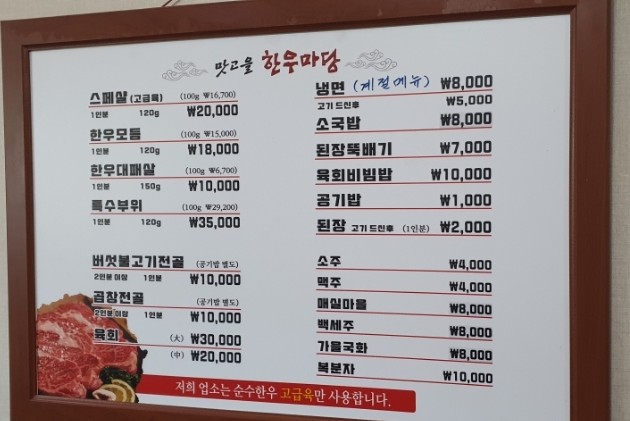 맛고을 한우마당
스페샬 (고급육) (100g ₩16,700)
1인분 120g ₩20,000
한우모듬 (100g ₩15,000)
1인분 120g ₩18,000
한우대패살 (100g ₩6,700)
1인분 150g ₩10,000
특수부위 (100g ₩29,200)
1인분 120g ₩35,000
버섯불고기전골 (공기밥 별도)
2인분 이상 1인분 ₩10,000
곱창전골 (공기밥 별도)
2인분 이상 1인분 ₩10,000
육회 (大) ₩30,000
(中) ₩20,000
냉면 (계절메뉴) ₩8,000
고기 드신후 ₩5,000
소국밥 ₩8,000
된장뚝배기 ₩7,000
육회비빔밥 ₩10,000
공기밥 ₩1,000
된장 고기 드신후 (1인분) ₩2,000
소주 ₩4,000
맥주 ₩4,000
매실마을 ₩8,000
백세주 ₩8,000
가을국화 ₩8,000
복분자 ₩10,000
저희 업소는 순수한우 고급육만 사용합니다.